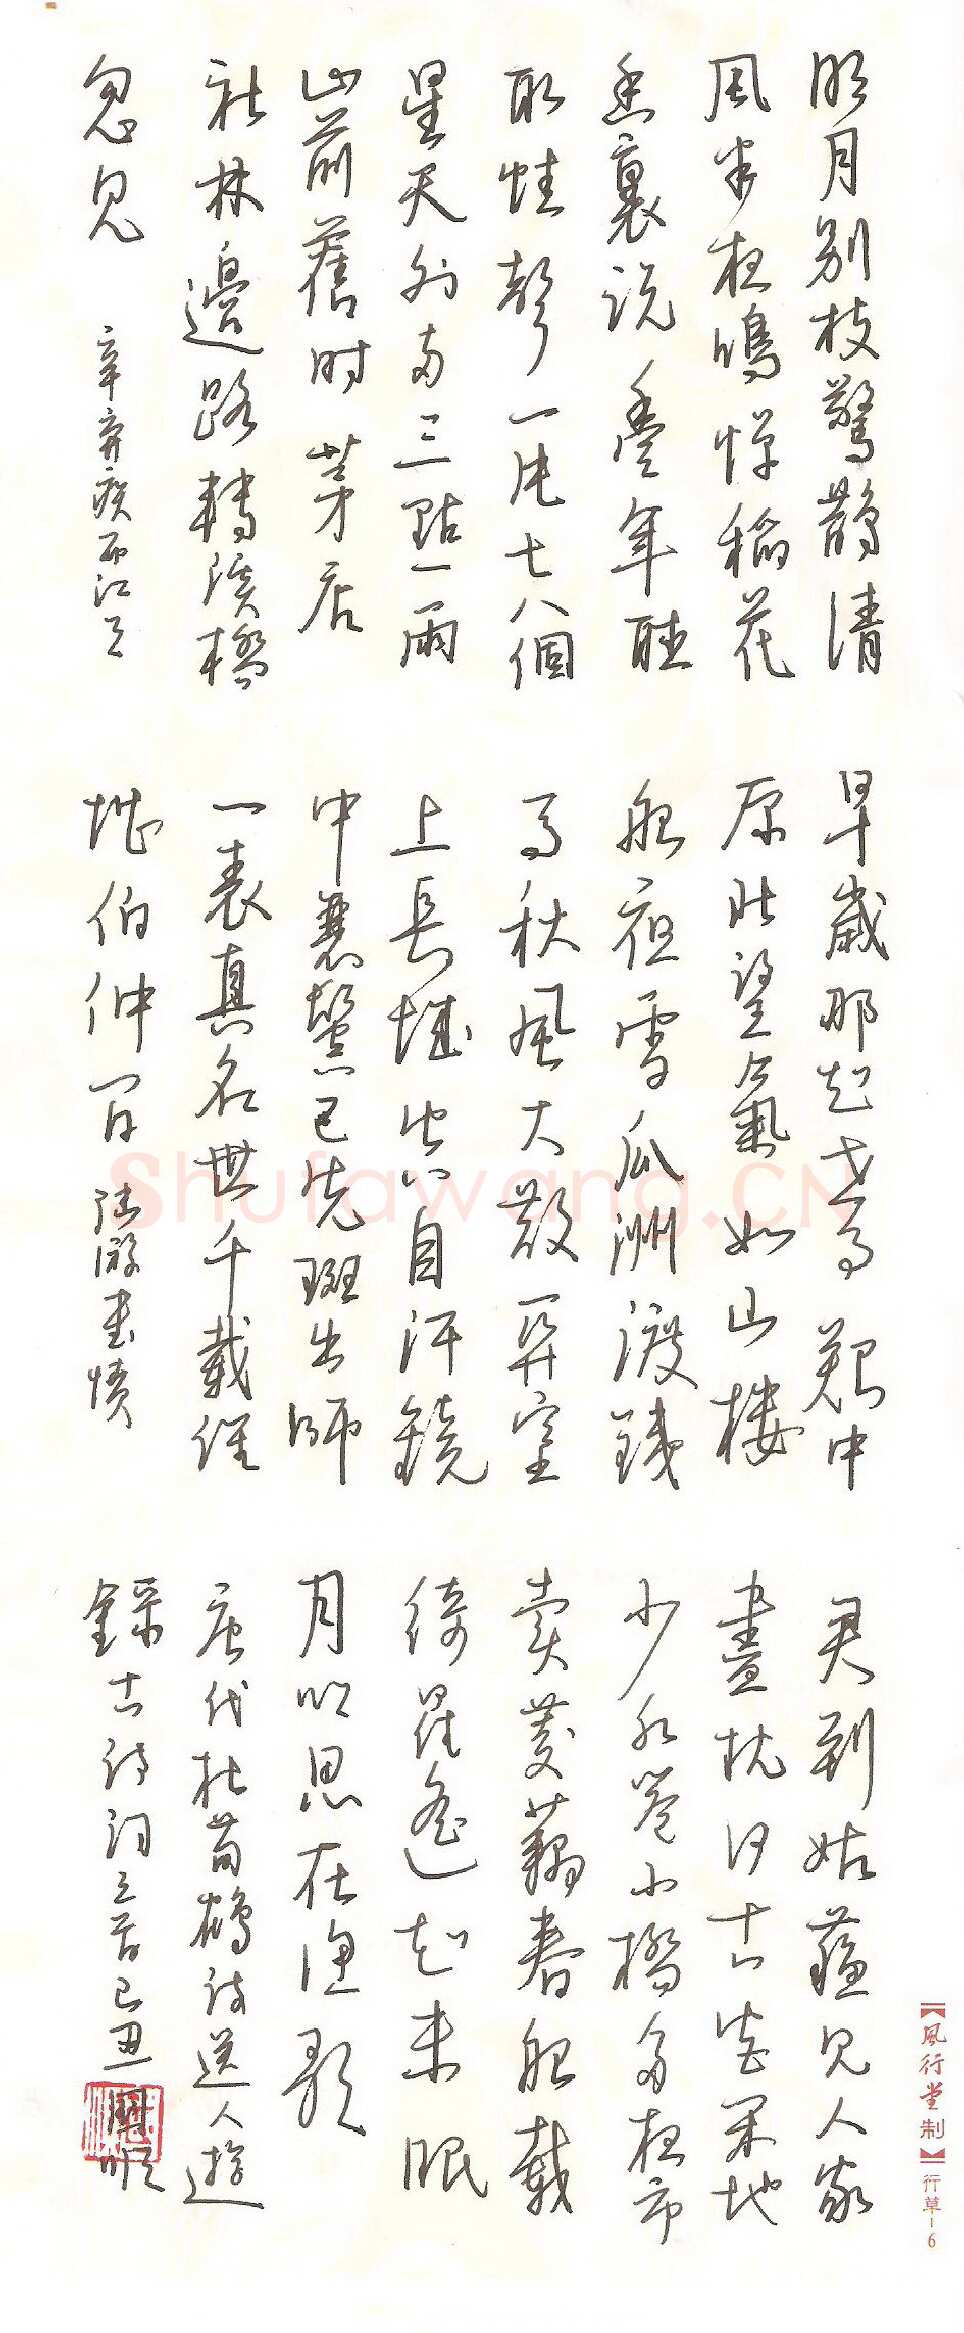 明月別枝驚鵲清
風半夜鳴蟬稻花
香裏說豐年聽
取蛙聲一片七八個
星天外兩三點雨
山前舊時茅店
社林邊路轉溪橋
忽見 辛弃疾西江月
早歲那知世事艱中
原北望氣如山樓
船夜雪瓜洲渡鐵
馬秋風大散關塞
上長城空自許鏡
中衰鬢已先斑出師
一表真名世千載誰
堪伯仲間 陸游書憤
君到姑蘇見人家
盡枕河古宮閑地
少水巷小橋多夜市
賣菱藕春船載
綺羅遙知未眠
月鄉思在漁歌
唐代杜荀鶴詩送人遊
錄古詩詞三首己丑
【風行堂制】行草-6
Shufawang.CN